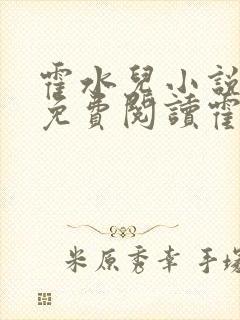 霍水兒小說
免費閱讀霍
米原秀幸 手塚